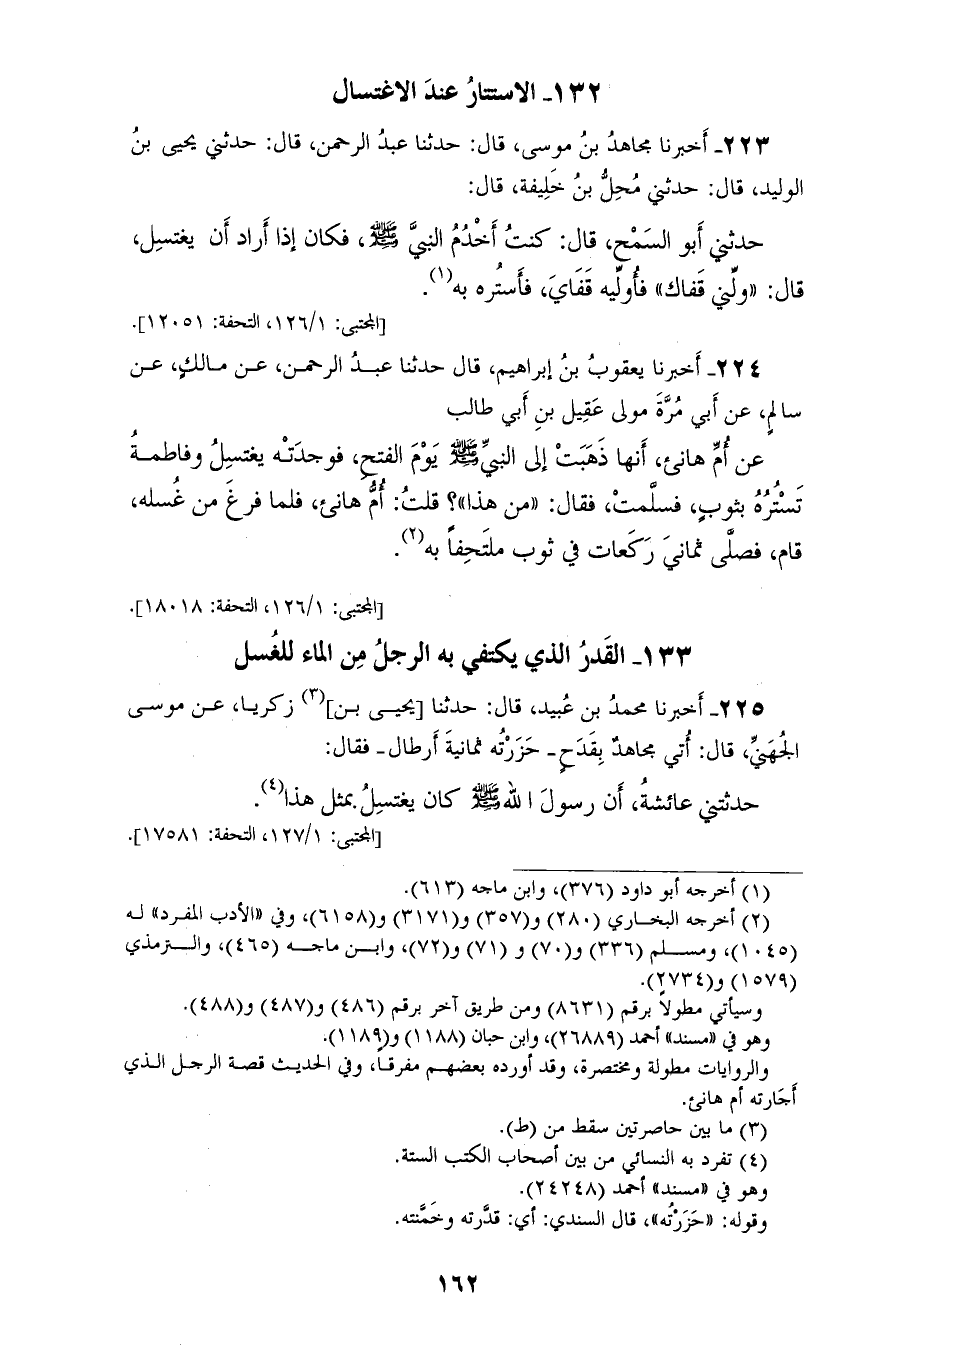 ١٣٢ـ الاستتارُ عندَ الاغتسال
٢٢٣ـ أَخبرنا مجاهدُ بنُ موسى، قال: حدثنا عبدُ الرحمن، قال: حدثني يحيى بنُ
الوليد، قال: حدثني مُحِلُّ بنُ خَلِيفة، قال:
حدثني أَبو السَمْح، قال: كنتُ أَخْدُمُ النبيَّ ﷺ، فكان إذا أَراد أَن يغتسِل،
قال: «ولِّني قَفاك» فأُولِّيه قَفَايَ، فأَستُره به(١).
[المجتبى: ١٢٦/١، التحفة: ١٢٠٥١].
٢٢٤ـ أَخبرنا يعقوبُ بنُ إبراهيم، قال حدثنا عبدُ الرحمن، عن مالكٍ، عن
سالمٍ، عن أَبي مُرَّةَ مولى عَقِيل بنِ أَبي طالب
عن أُمِّ هانئ، أَنها ذَهَبَتْ إلى النبيِّ ﷺ يَوْمَ الفتحِ، فوجدَتْه يغتسِلُ وفاطمةُ
تَسْتُرُهُ بثوبٍ، فسلَّمتْ، فقال: «من هذا»؟ قلتُ: أُمُّ هانئ، فلما فرغَ من غُسله،
قام، فصلَّى ثمانيَ رَكَعات في ثوب ملتَحِفاً به(٢).
[المجتبى: ١٢٦/١، التحفة: ١٨٠١٨].
١٣٣ـ القَدرُ الذي يكتفي به الرجلُ مِن الماء للغُسل
٢٢٥ـ أَخبرنا محمدُ بن عُبيد، قال: حدثنا [يحيى بن](٣) زكريا، عن موسى
الجُهَنيِّ، قال: أُتي مجاهدٌ بِقَدَحٍ ـ حَزَرْتُه ثمانيةَ أَرطال ـ فقال:
حدثتني عائشةُ، أَن رسولَ الله ﷺ كان يغتسِلُ بمثل هذا(٤).
[المجتبى: ١٢٧/١، التحفة: ١٧٥٨١].
(١) أخرجه أبو داود (٣٧٦)، وابن ماجه (٦١٣).
(٢) أخرجه البخاري (٢٨٠) و(٣٥٧) و(٣١٧١) و(٦١٥٨)، وفي «الأدب المفرد» له
(١٠٤٥)، ومسلم (٣٣٦) و(٧٠) و (٧١) و(٧٢)، وابن ماجه (٤٦٥)، والترمذي
(١٥٧٩) و(٢٧٣٤).
وسيأتي مطولاً برقم (٨٦٣١) ومن طريق آخر برقم (٤٨٦) و(٤٨٧) و(٤٨٨).
وهو في «مسند» أحمد (٢٦٨٨٩)، وابن حبان (١١٨٨) و(١١٨٩).
والروايات مطولة ومختصرة، وقد أورده بعضهم مفرقاً، وفي الحديث قصة الرجل الذي
أَجَارته أم هانئ.
(٣) ما بين حاصرتين سقط من (ط).
(٤) تفرد به النسائي من بين أصحاب الكتب الستة.
وهو في «مسند» أحمد (٢٤٢٤٨).
وقوله: «حَزَرْتُه»، قال السندي: أي: قدَّرته وخَمَّنته.
١٦٢